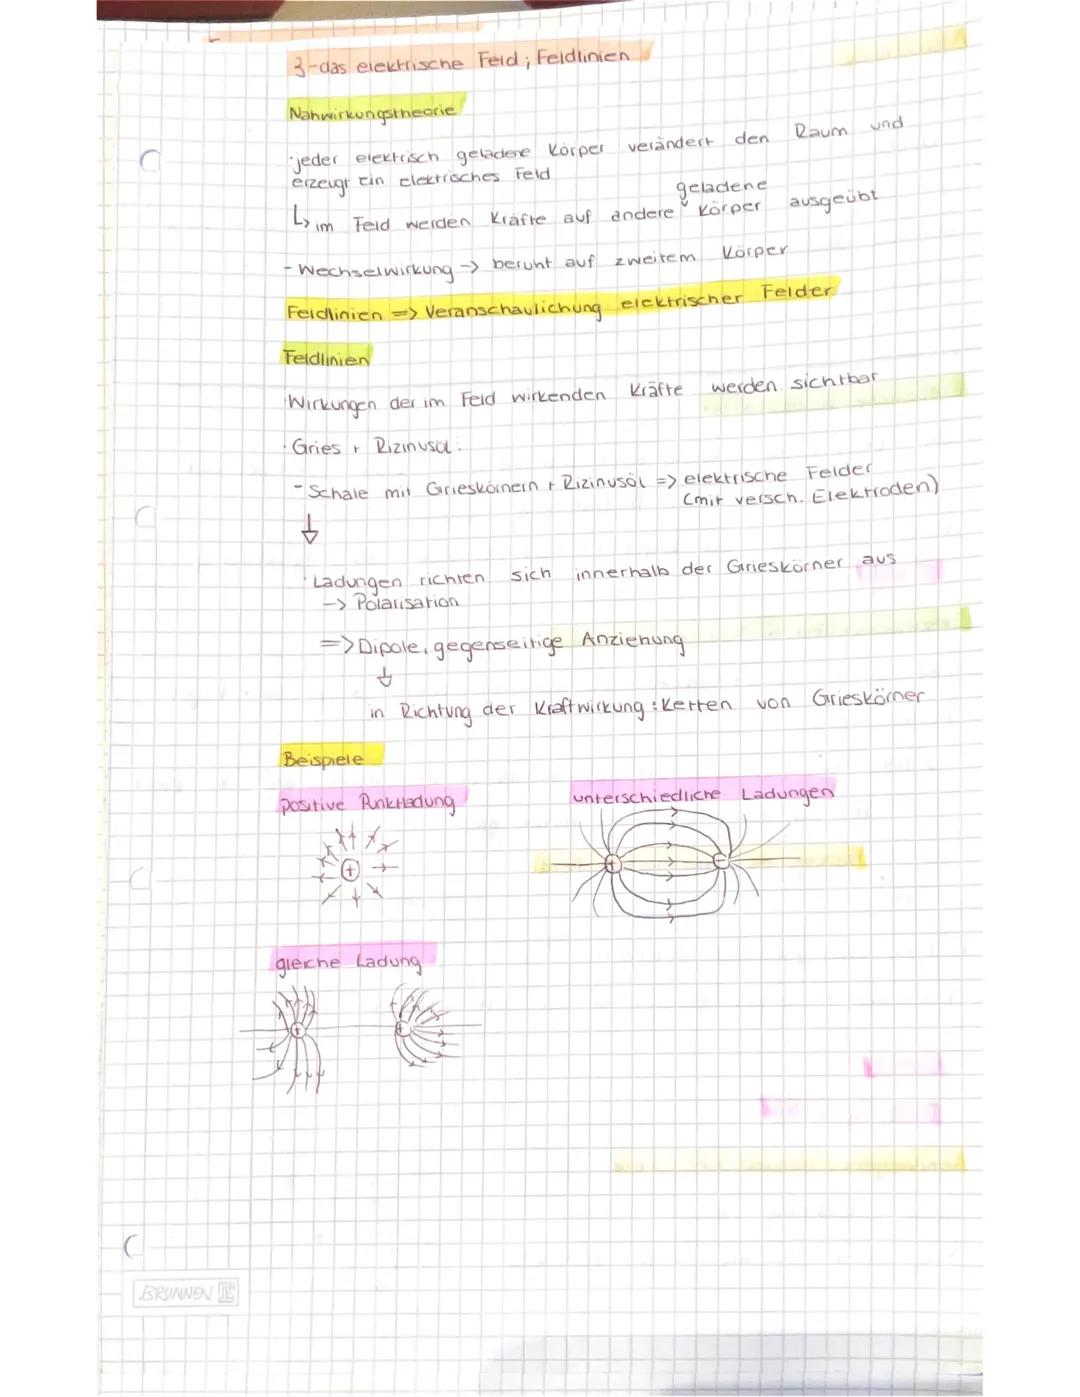 3-das elektrische Feld; Feldlinien
Nahwirkungstheorie
·jeder elektrisch geladene Körper verändert den Raum und
erzeugt ein elektrisches Feld
geladene
↳ im Feld werden Kräfte auf andere ˅ Körper ausgeübt
- Wechselwirkung -> beruht auf zweitem Körper
Feldlinien => Veranschaulichung elektrischer Felder
Feldlinien
·Wirkungen der im Feld wirkenden Kräfte werden sichtbar
·Gries + Rizinusöl:
- Schale mit Grieskörnern + Rizinusöl => elektrische Felder
(mit versch. Elektroden)
·Ladungen richten sich innerhalb der Grieskörner aus
-> Polarisation
=> Dipole, gegenseitige Anziehung
in Richtung der Kraftwirkung: Ketten von Grieskörner
Beispiele
positive Punktladung
unterschiedliche Ladungen
+
+ -
gleiche Ladung
+ +
BRUNNEN